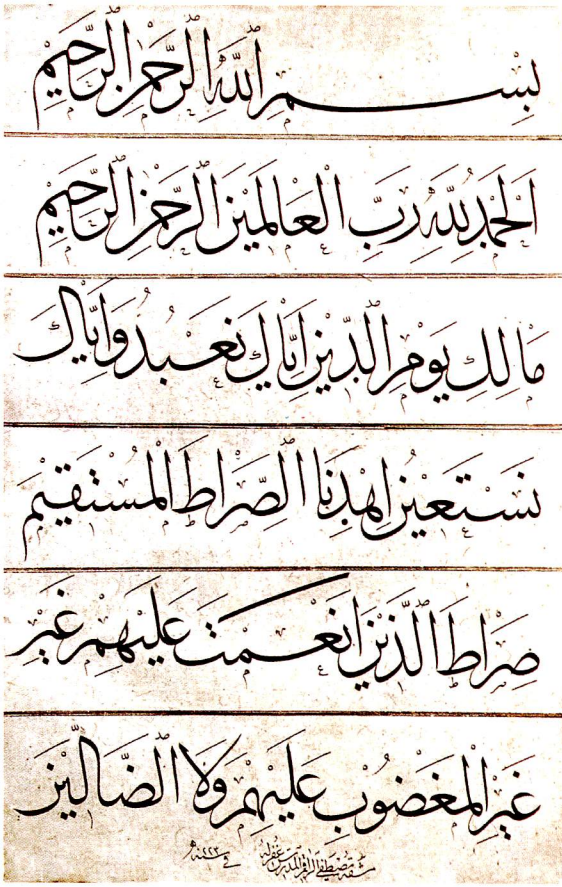 بسم الله الرحمن الرحيم
الحمد لله رب العالمين الرحمن الرحيم
مالك يوم الدين اياك نعبد واياك
نستعين اهدنا الصراط المستقيم
صراط الذين انعمت عليهم غير
غير المغضوب عليهم ولا الضالين
مشقه مصطفى الراقم غفر له
في سنة